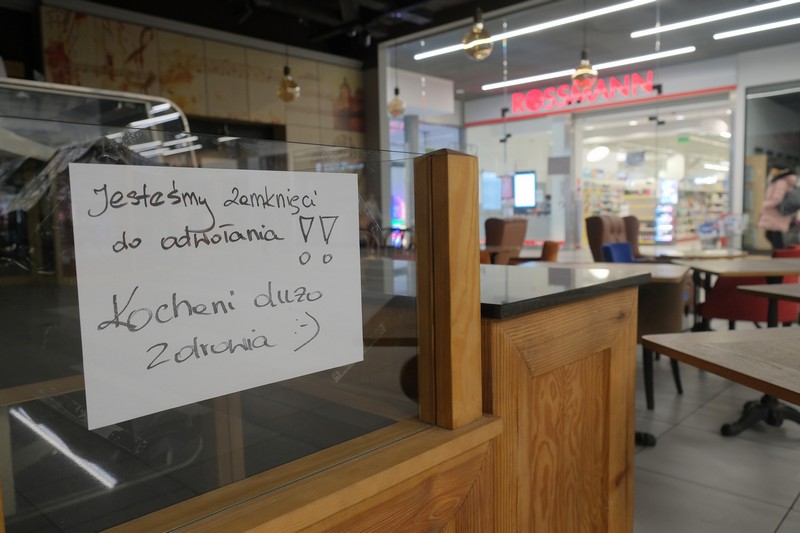 Jesteśmy zamknięci
do odwołania !!
Kochani dużo
zdrowia :-)
ROSSMANN